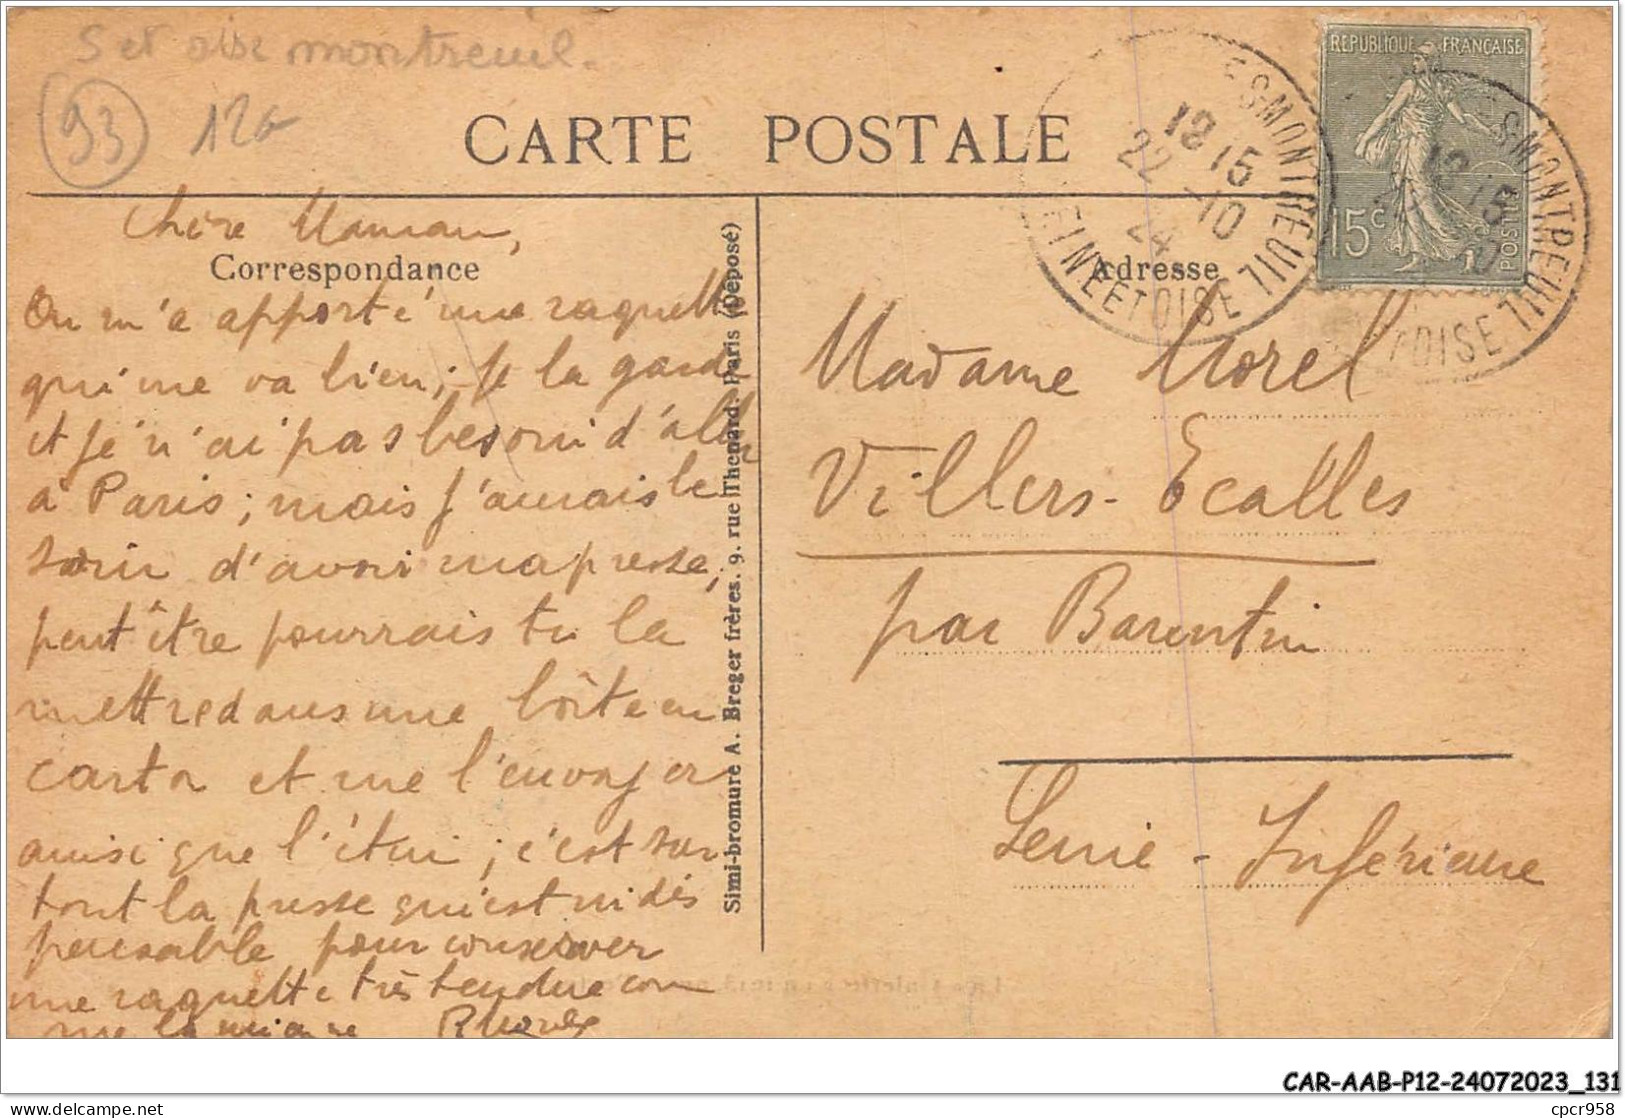 S et oise montreuil.
93 12a
CARTE POSTALE
Correspondance
Adresse
RÉPUBLIQUE FRANÇAISE
15c
POSTES
S-MONTREUIL
18 15
22 -10
24
SEINE ET OISE
S-MONTREUIL
18 15
OISE
Chère Maman,
On m'a apporté une raquette
qui me va bien; je la garde
et je n'ai pas besoin d'aller
à Paris; mais j'aurais be
soin d'avoir ma presse,
peut être pourrais tu la
mettre dans une boîte en
carton et me l'envoyer
ainsi que l'étui; c'est sur
tout la presse qui est indis
pensable pour conserver
une raquette très tendue com
me la mienne
Simi-bromure A. Breger frères. 9, rue Thénard. Paris (Déposé)
Madame Morel
Villers-Ecalles
par Barentin
Seine-Inférieure
CAR-AAB-P12-24072023_131
Delcampe.net
cpcr958